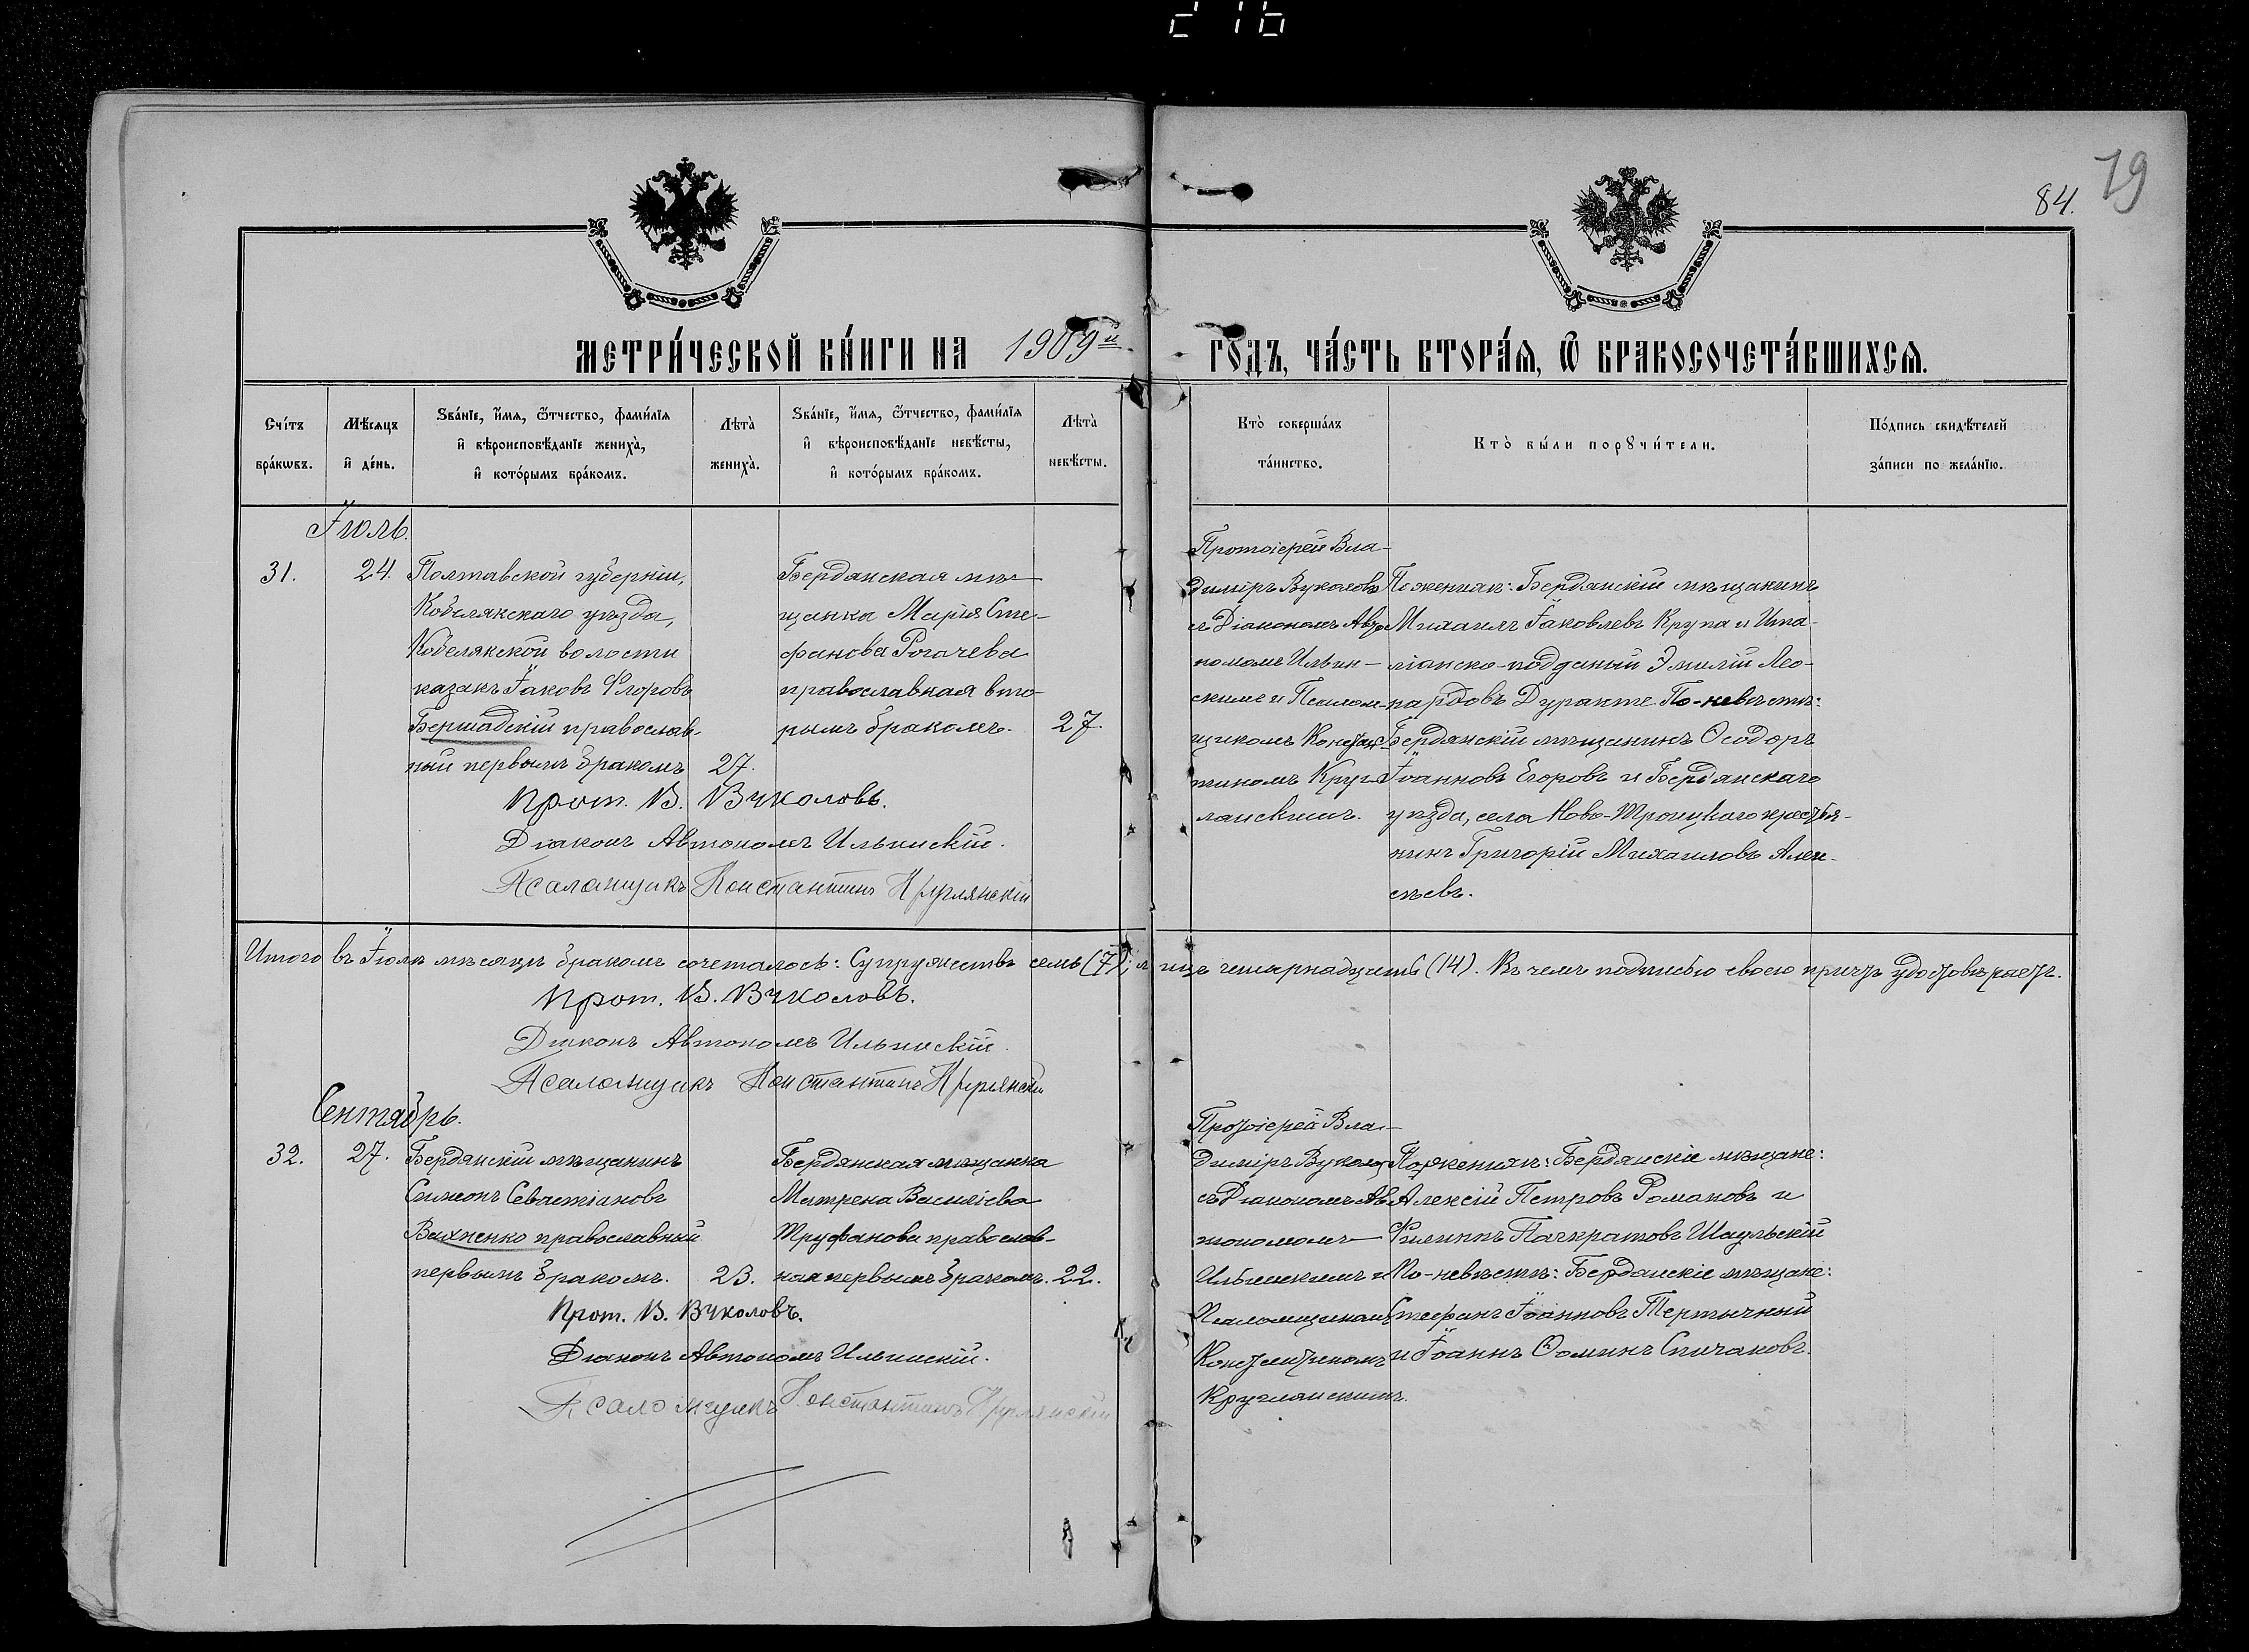 216
79
84.
МЕТРИ́ЧЕСКОЙ КНИ́ГИ НА 1909й
ГО́ДЪ, ЧА́СТЬ ВТОРА́Я, Ѿ БРАКОСОЧЕТА́ВШИХСЯ.
Сче́тъ бра́кѡвъ.
Мѣ́сяцъ и҆ де́нь.
Ѕва́нїе, и҆́мя, ѻ҆́тчество, фами́лїя
и҆ вѣроисповѣ́данїе жениха̀,
и҆ кото́рымъ бра́комъ.
Лѣта̀ жениха̀.
Ѕва́нїе, и҆́мя, ѻ҆́тчество, фами́лїя
и҆ вѣроисповѣ́данїе невѣ́сты,
и҆ кото́рымъ бра́комъ.
Лѣта̀ невѣ́сты.
Кто̀ соверша́лъ та́инство.
Кто̀ бы́ли порꙋчи́тели.
По́дпись свидѣ́телей
за́писи по жела́нїю.
Іюль.
31.
24.
Полтавской губерніи,
Кобелякскаго уѣзда,
Кобелякской волости
казакъ Іаковъ Ѳлоровъ
Бершадскій православ-
ный первымъ бракомъ
27.
Бердянская мѣ-
щанка Марія Сте-
фанова Рогачева
православная вто-
рымъ бракомъ.
27.
Протоіерей Вла-
диміръ Вуколовъ
съ Діакономъ Авто
номомъ Ильин-
скимъ и Псалом-
щикомъ Констан-
тиномъ Круг
лянскимъ.
По женихѣ: Бердянскій мѣщанинъ
Михаилъ Іаковлевъ Крупа и Ита-
ліанско-подданый Эмилій Лео-
нардовъ Дуранте. По-невѣстѣ:
Бердянскій мѣщанинъ Ѳеодоръ
Іоанновъ Егоровъ и Бердянскаго
уѣзда, села Ново-Троицкаго крестья-
нинъ Григорій Михаиловъ Алек-
сѣевъ.
Прот. В. Вуколовъ.
Діаконъ Автономъ Ильинскій.
Псаломщикъ Константинъ Круглянскій
Итого въ Іюлѣ мѣсяцѣ бракомъ сочеталось: Супружествъ семь (7); лицъ четырнадцать (14). Въ чемъ подписью своею причтъ удостовѣряетъ.
Прот. В. Вуколовъ.
Діаконъ Автономъ Ильинскій.
Псаломщикъ Константинъ Круглянскій
Сентябрь.
32.
27.
Бердянскій мѣщанинъ
Симеонъ Севастіановъ
Вихненко православный
первымъ бракомъ.
23.
Бердянская мѣщанка
Матрена Василіева
Труфанова православ-
ная первымъ бракомъ.
22.
Протоіерей Вла-
диміръ Вуколовъ
съ Діакономъ Ав
тономомъ
Ильинскимъ и
Псаломщикомъ
Константиномъ
Круглянскимъ.
По женихѣ: Бердянскіе мѣщане:
Алексій Петровъ Романовъ и
Филиппъ Панкратовъ Шаульскій
По-невѣстѣ: Бердянскіе мѣщане:
Стефанъ Іоанновъ Тертычный
и Іоаннъ Ѳоминъ Спичаковъ.
Прот. В. Вуколовъ.
Діаконъ Автономъ Ильинскій.
Псаломщикъ Константинъ Круглянскій